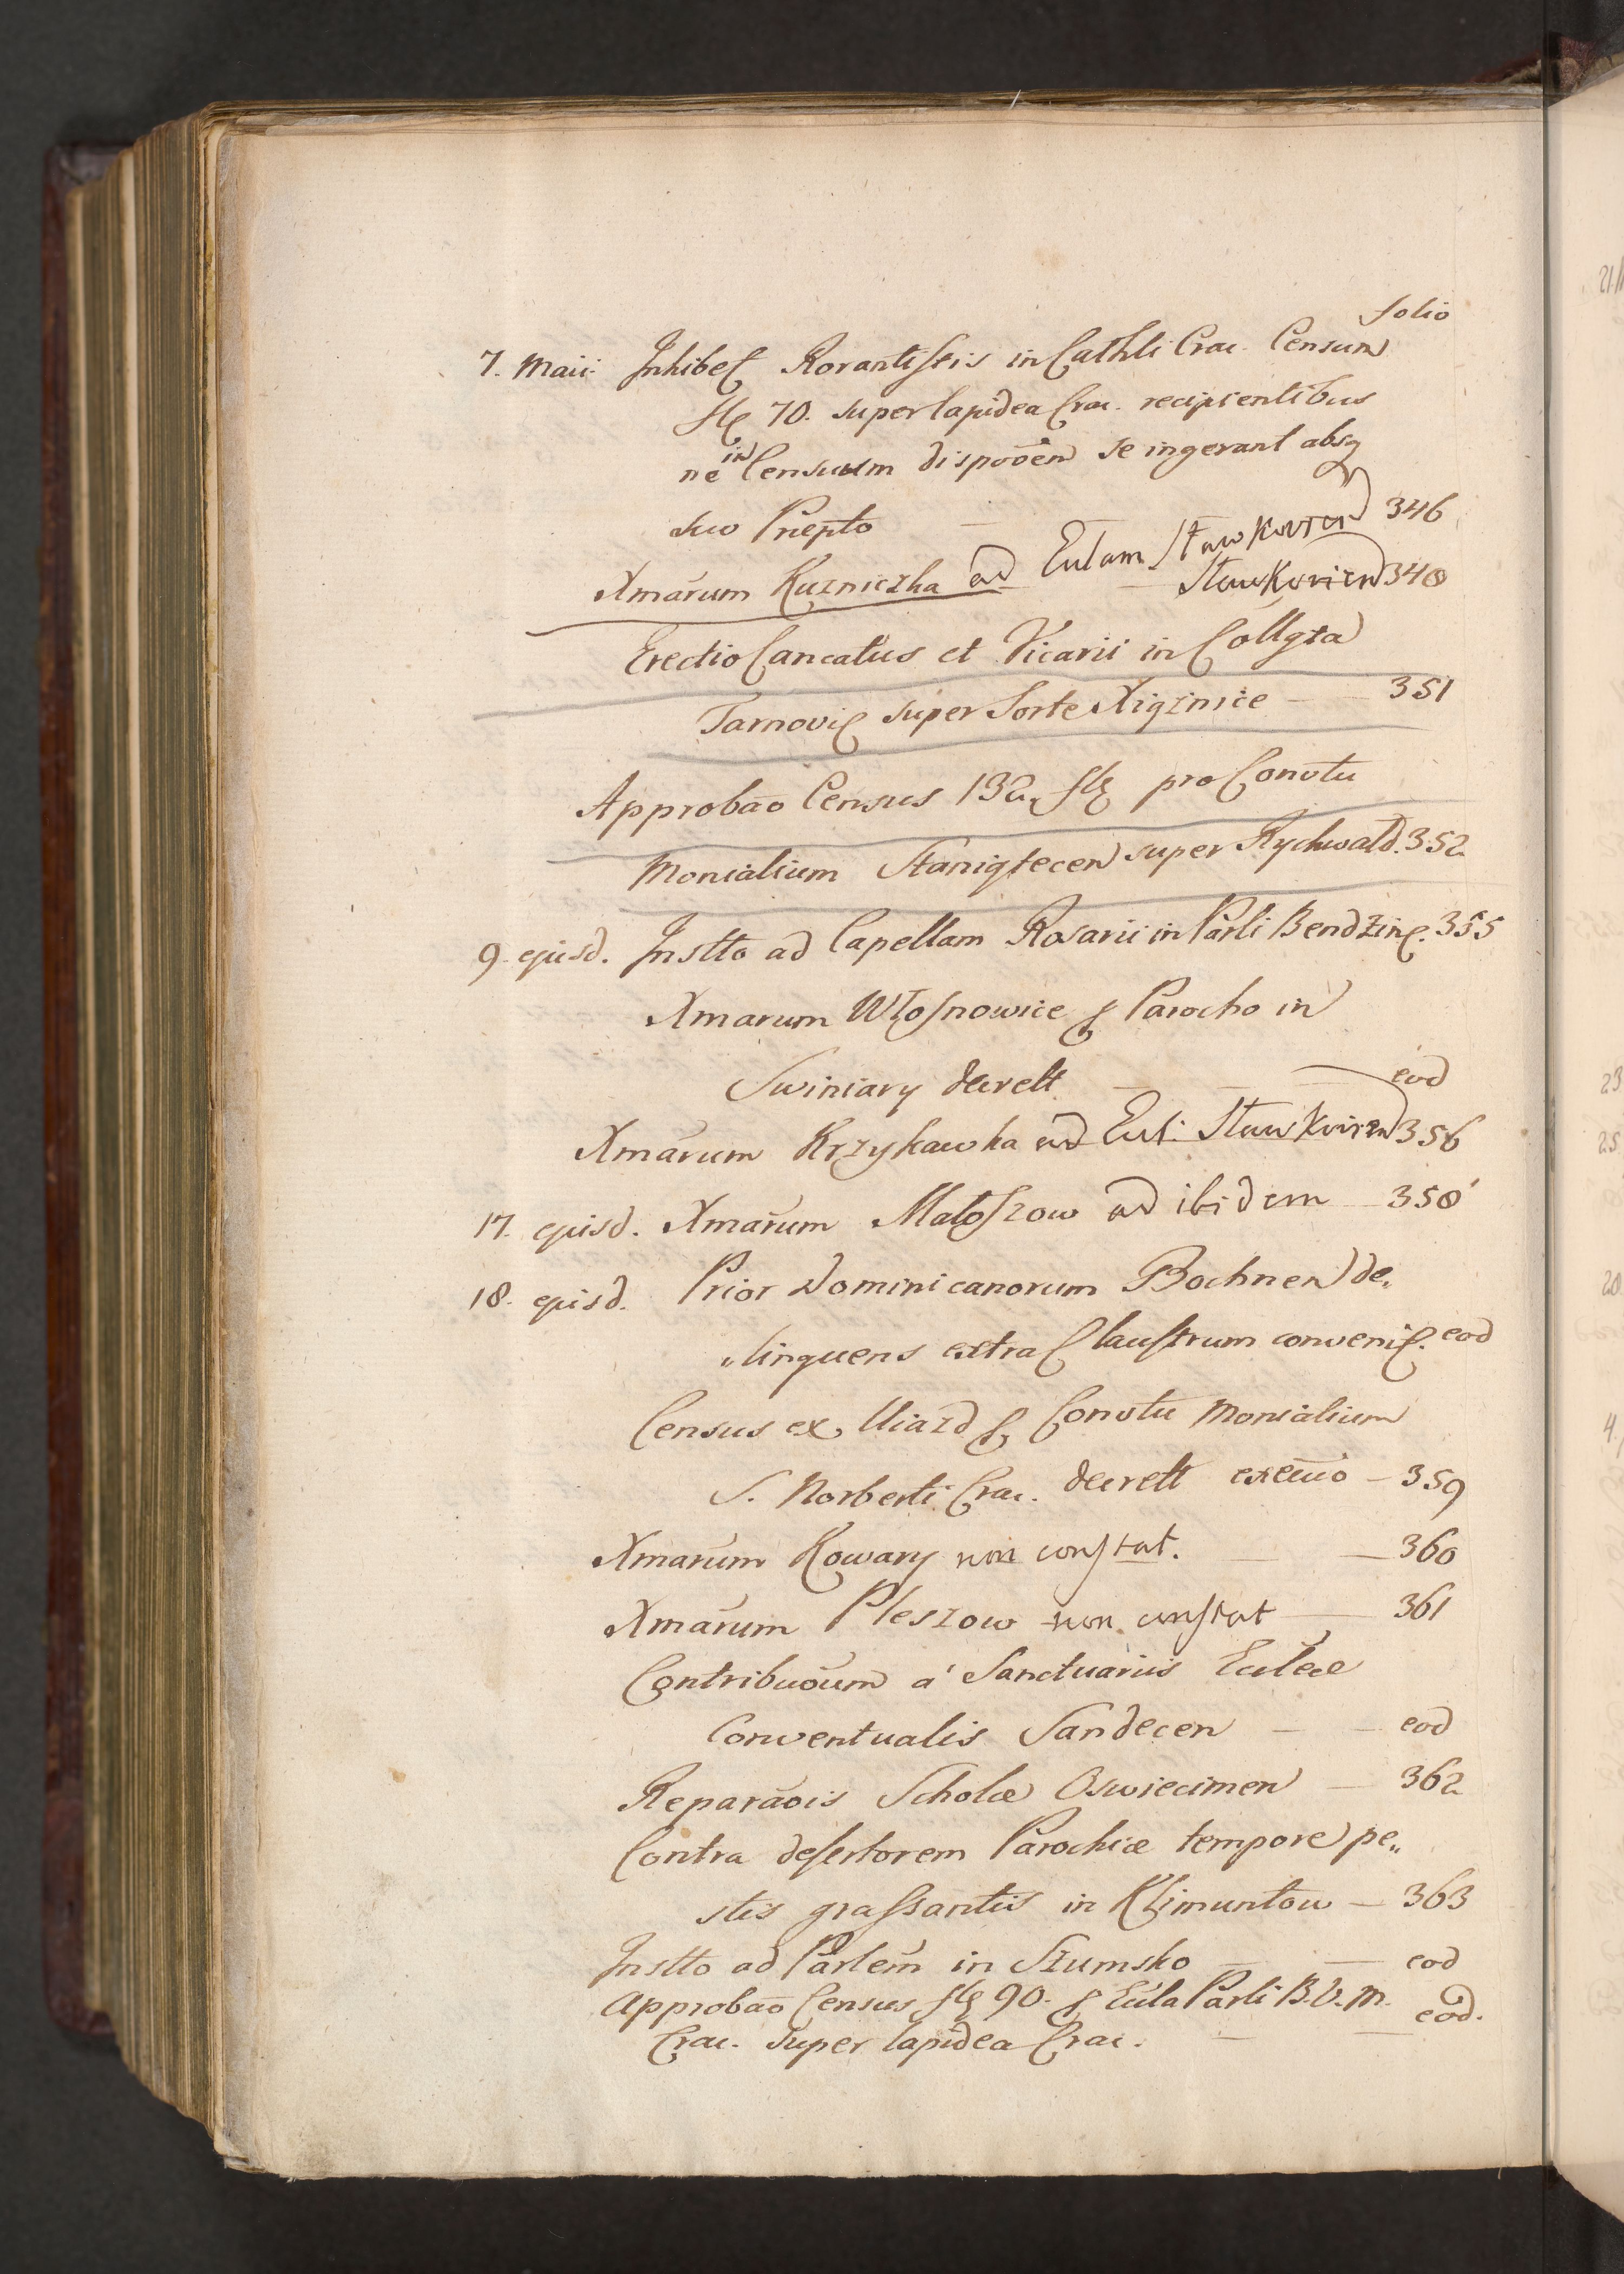 folio
7. Maii. Inhibeꝭ Rorantistis in Cathli Crac. Censum
flꝭ 70. super lapidea Crac. recipientibus
ne in Censuum dispoōen se ingerant absq
suo Pnepto 346
Xmārum Kuzniczka ad Eccl̄am Sławkovien
Sławkovien 348
Erectio Cancatus et Vicarii in Collgta
Tarnoviꝭ super Sorte Xigznice 351
Approbāo Census 132 flꝭ pro Convtu
Monialium Staniątecen super Rychwałd. 352
9. ejusd. Instto ad Capellam Rosarii in Pārli Bendzinꝭ. 355
Xmarum Włosnowice ꝑ Parocho in
Swiniary decrett eod
Xmārum Krzykawka ad Eccl: Sławkovien 356
17. ejusd. Xmārum Małoszow ad ibidem 358
18. ejusd. Prior Dominicanorum Bochnen de„
„linquens extra Claustrum conveniꝭ. eod
Census ex Uiazd ꝑ Convtu Monialium
S. Norberti Crac. decrett execuō – 359
Xmarum Kowary non constat. 360
Xmārum Pleszow non constat 361
Contribuōum a' Sanctuariis Eccleæ
Conventualis Sandecen eod
Reparāois Scholæ Oswiecimen 362
Contra desertorem Parochiæ tempore pe„
stis grassantis in Klimuntow – 363
Instto ad Parlem̄ in Szumsko eod
Approbāo Census flꝭ 90. ꝑ Eccla Parli B.V.M.
Crac. super lapidea Crac. eod.